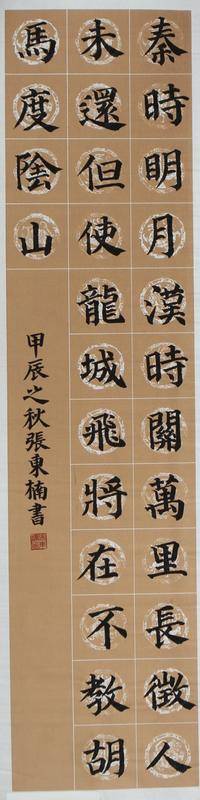 秦時明月漢時關萬里長徵人
未還但使龍城飛將在不教胡
馬度陰山
甲辰之秋張東楠書